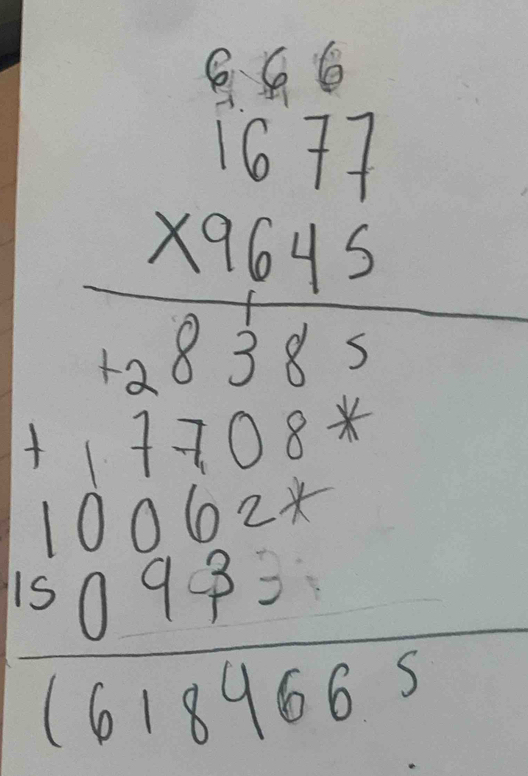 6 6 6
1677
X9645
+28385
+17708*
10062*
150933
16184665